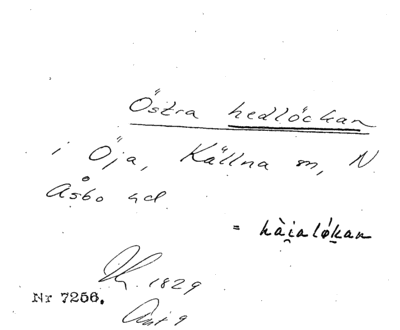 Östra hedlöckan
i Öja, Källna sn, N
Åsbo hd
= hài̯aló̱ḵan
1829
Nr 7256.